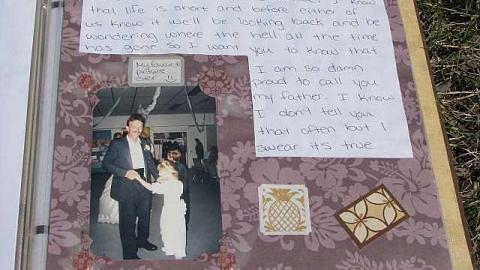 I know
that life is short and before either of
us know it we'll be looking back and be
wondering where the hell all the time
has gone so I want you to know that
I am so damn
proud to call you
my father. I know
I don't tell you
that often but I
swear it's true
My favorite
picture
ever !!